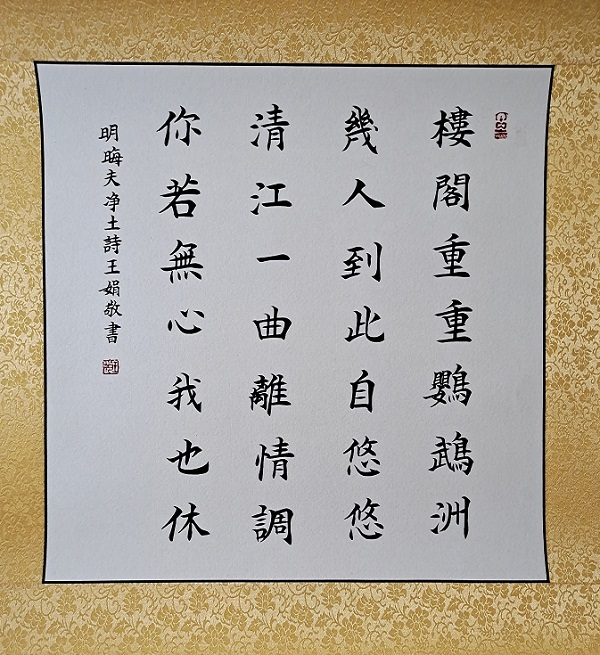 樓閣重重鸚鵡洲
幾人到此自悠悠
清江一曲離情調
你若無心我也休
明晦夫净土詩王娟敬書